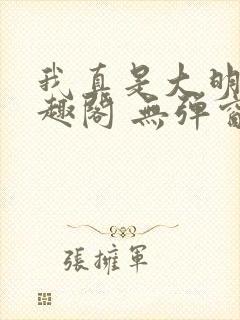 我真是大明
趣閣 無彈窗
張擁軍